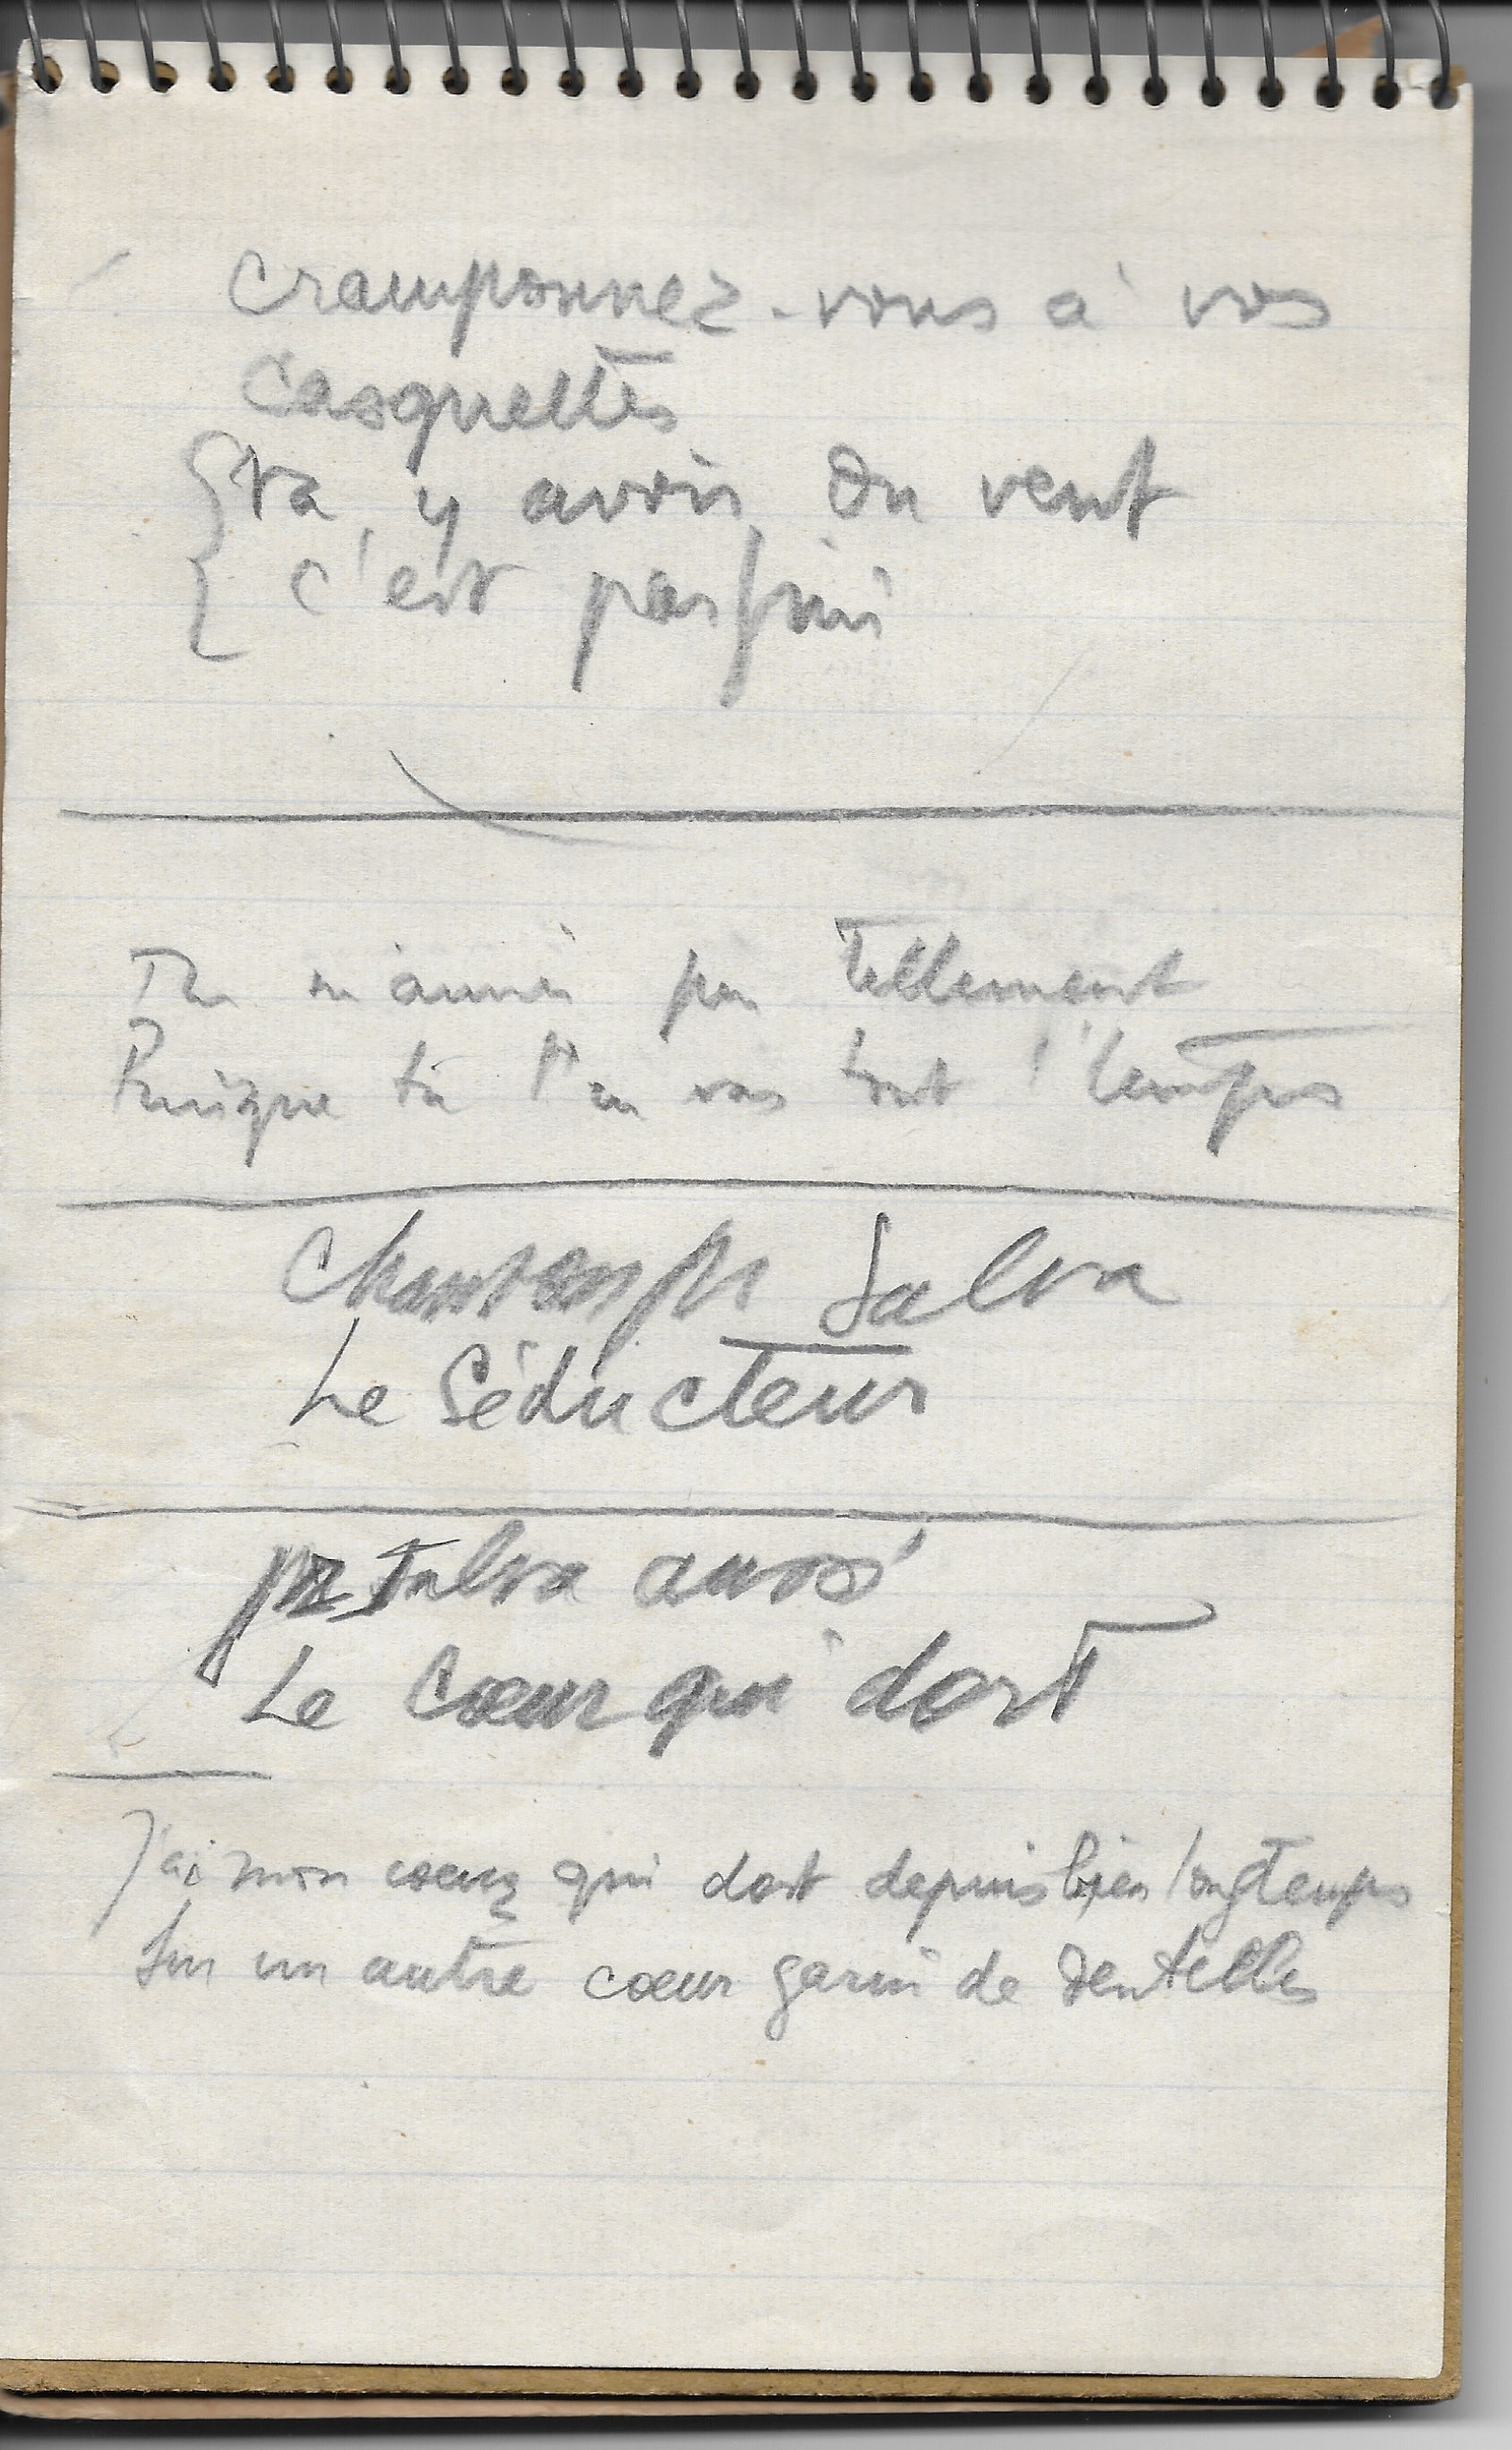 Cramponnez-vous à vos
casquettes
va y avoir du vent
c'est pas fini
Tu m'aimes pas tellement
Puisque tu t'en vas tout l'temps
Chanson pr Salva
Le Séducteur
pr Salva aussi
Le Cœur qui dort
J'ai mon coeur qui dort depuis bien longtemps
Sur un autre cœur garni de dentelles